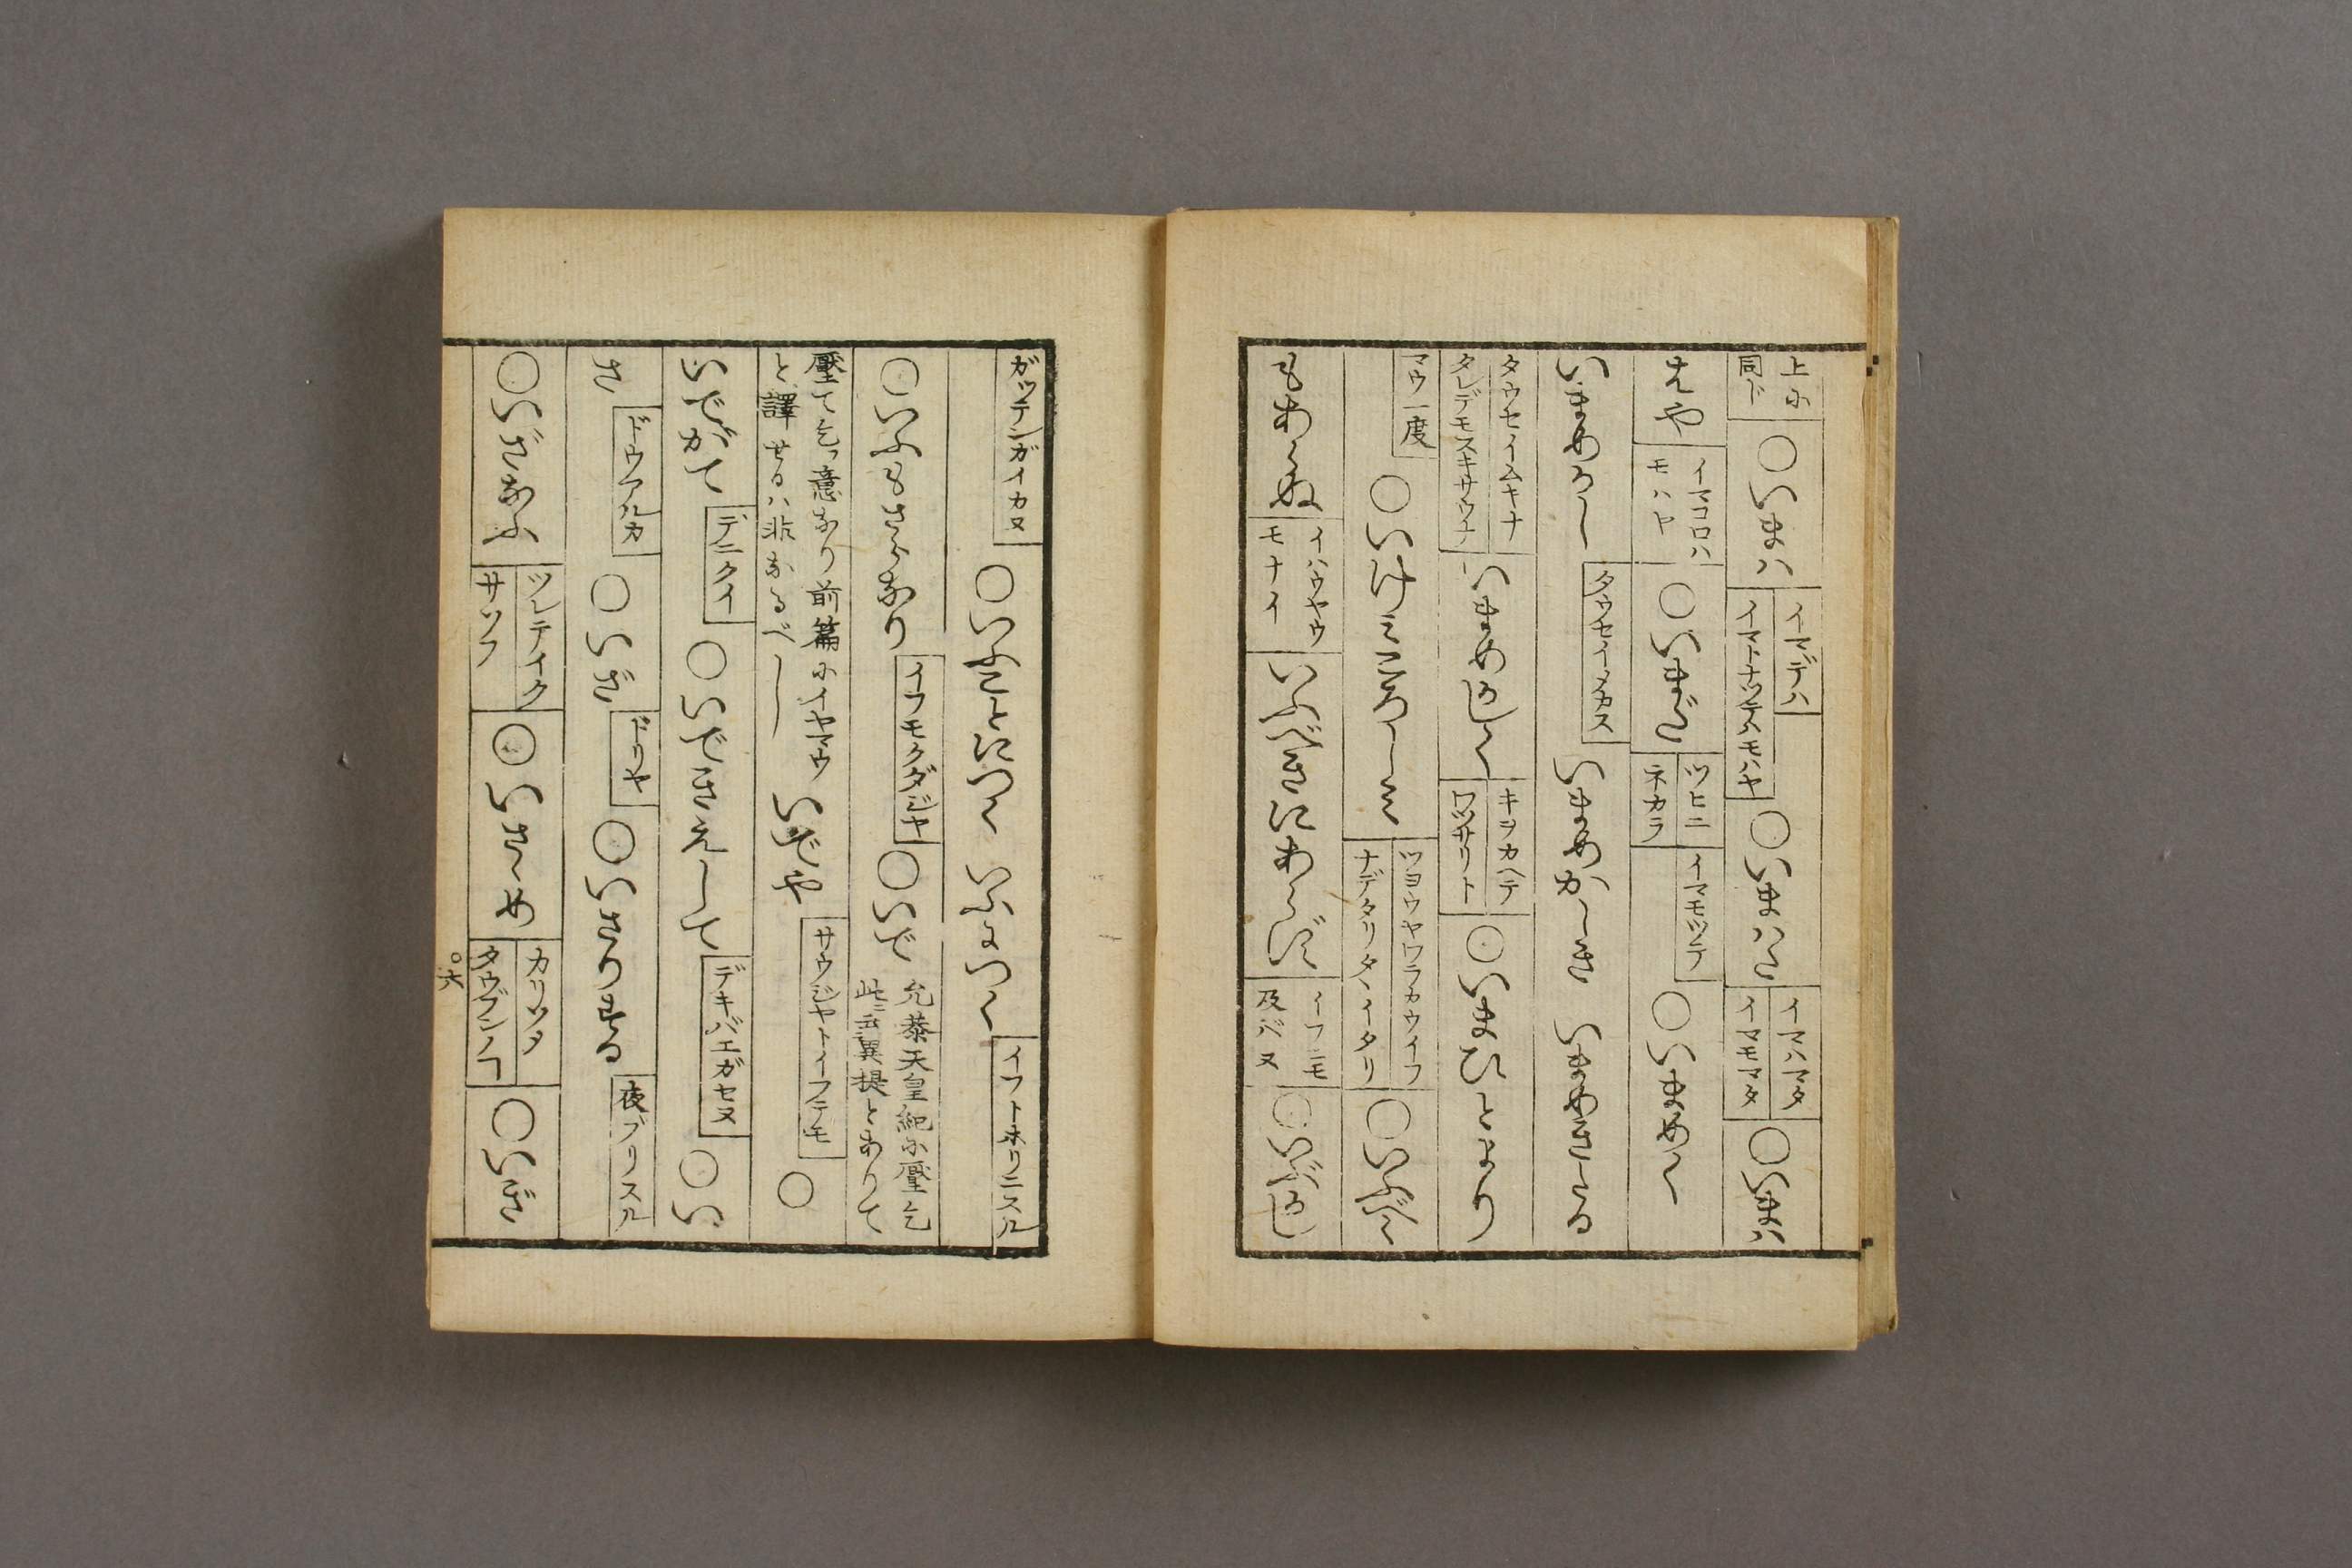 上に同ド ○いまハ イマデハ イマトナツテハモハヤ ○いまハた イマハマタ イマモマタ ○いまハ
はや イマコロハ モハヤ ○いまだ ツヒニ ネカラ イマモツテ ○いまめく
いまめかし タウセイメカス いまめかしき いまめきたる
タウセイムキナ タレデモスキサウナ いまめかしく キヲカヘテ ワツサリト ○いまひとより
マウ一度 ○いけミころしミ ツヨウヤワラカウイフ ナデタリタヽイタリ ○いふべく
もあらぬ イハウヤウ モナイ いふべきにあらず イフニモ 及バヌ ○いぶかし
ガツテンガイカヌ ○いふことにつく いふにつく イフトホリニスル
○いふもさらなり イフモクダジヤ ○いで 允恭天皇紀に壓乞 此云異提とありて
壓て乞っ意なり前篇にイヤマウ と譯せるハ非なるべし いでや サウジヤトイフテモ ○
いでがて デニクイ ○いできえして デキバエガセヌ ○い
さ ドウアルカ ○いざ ドリヤ ○いさりする 夜ブリスル
○いざなふ ツレテイク サソフ ○いさゝめ カリソメ タウブンノヿ ○いざ
○六